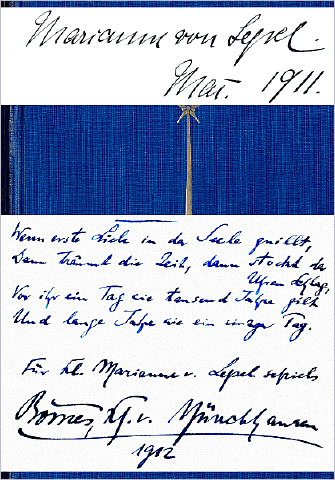 Marianne von Lepel.
Mai. 1911.
Wenn erste Liebe in der Seele quillt,
Dann träumt die Zeit, dann stockt der
Uhren Schlag,
Vor ihr ein Tag wie tausend Jahre gilt
Und lange Jahre wie ein einzger Tag.
Für Frl. Marianne v. Lepel schrieb's
Börries, v. Münchhausen
1912